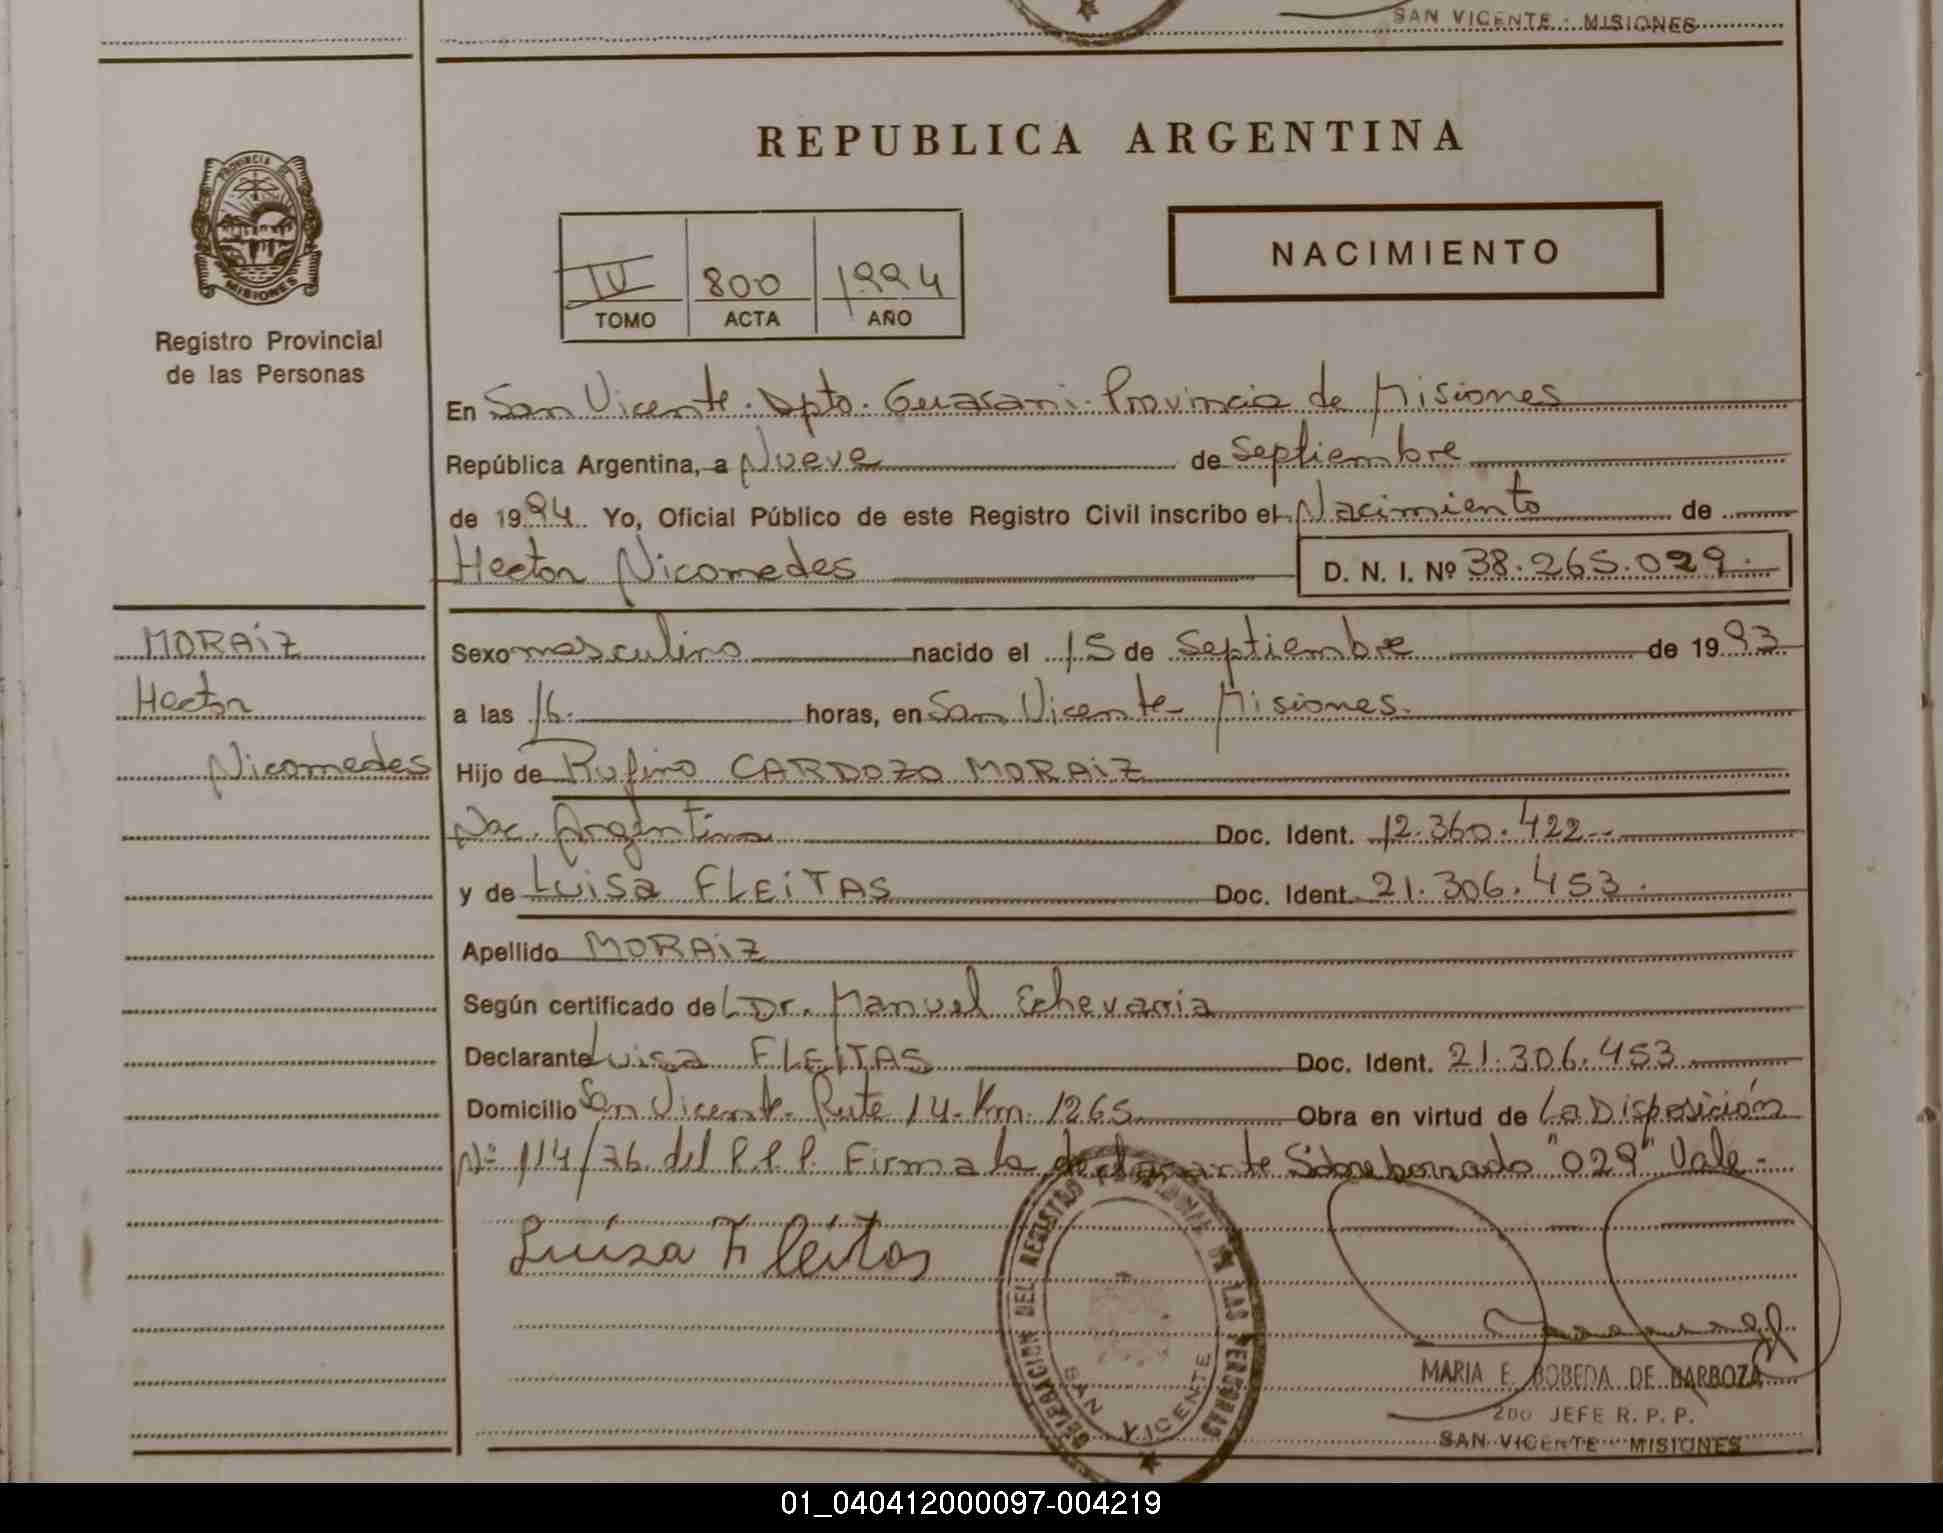 SAN VICENTE - MISIONES
REPUBLICA ARGENTINA
PROVINCIA DE
MISIONES
Registro Provincial
de las Personas
NACIMIENTO
IV 800 1994
TOMO ACTA AÑO
En San Vicente. Dpto. Guarani. Provincia de Misiones
República Argentina, a Nueve de Septiembre
de 1994. Yo, Oficial Público de este Registro Civil inscribo el Nacimiento de
Hector Nicomedes D. N. I. Nº 38.265.029.
MORAiZ
Hector
Nicomedes
Sexo masculino nacido el 15 de Septiembre de 1993
a las 16. horas, en San Vicente - Misiones.
Hijo de Rufino CARDOZO MORAiZ
Nac. Argentina Doc. Ident. 12.360.422-
y de Luisa FLEiTAS Doc. Ident. 21.306.453.
Apellido MORAiZ
Según certificado del Dr. Manuel Echevarria
Declarante Luisa FLEITAS Doc. Ident. 21.306.453
Domicilio San Vicente. Ruta 14. Km. 1265 Obra en virtud de La Disposición
Nº 114/76 del R.P.P. Firma la declarante Sobreborrado "029" Vale-
Luisa Fleitas
DELEGACION DEL REGISTRO PROVINCIAL DE LAS PERSONAS
SAN VICENTE
MARIA E. BOBEDA DE BARBOZA
2do JEFE R. P. P.
SAN VICENTE - MISIONES
01_040412000097-004219